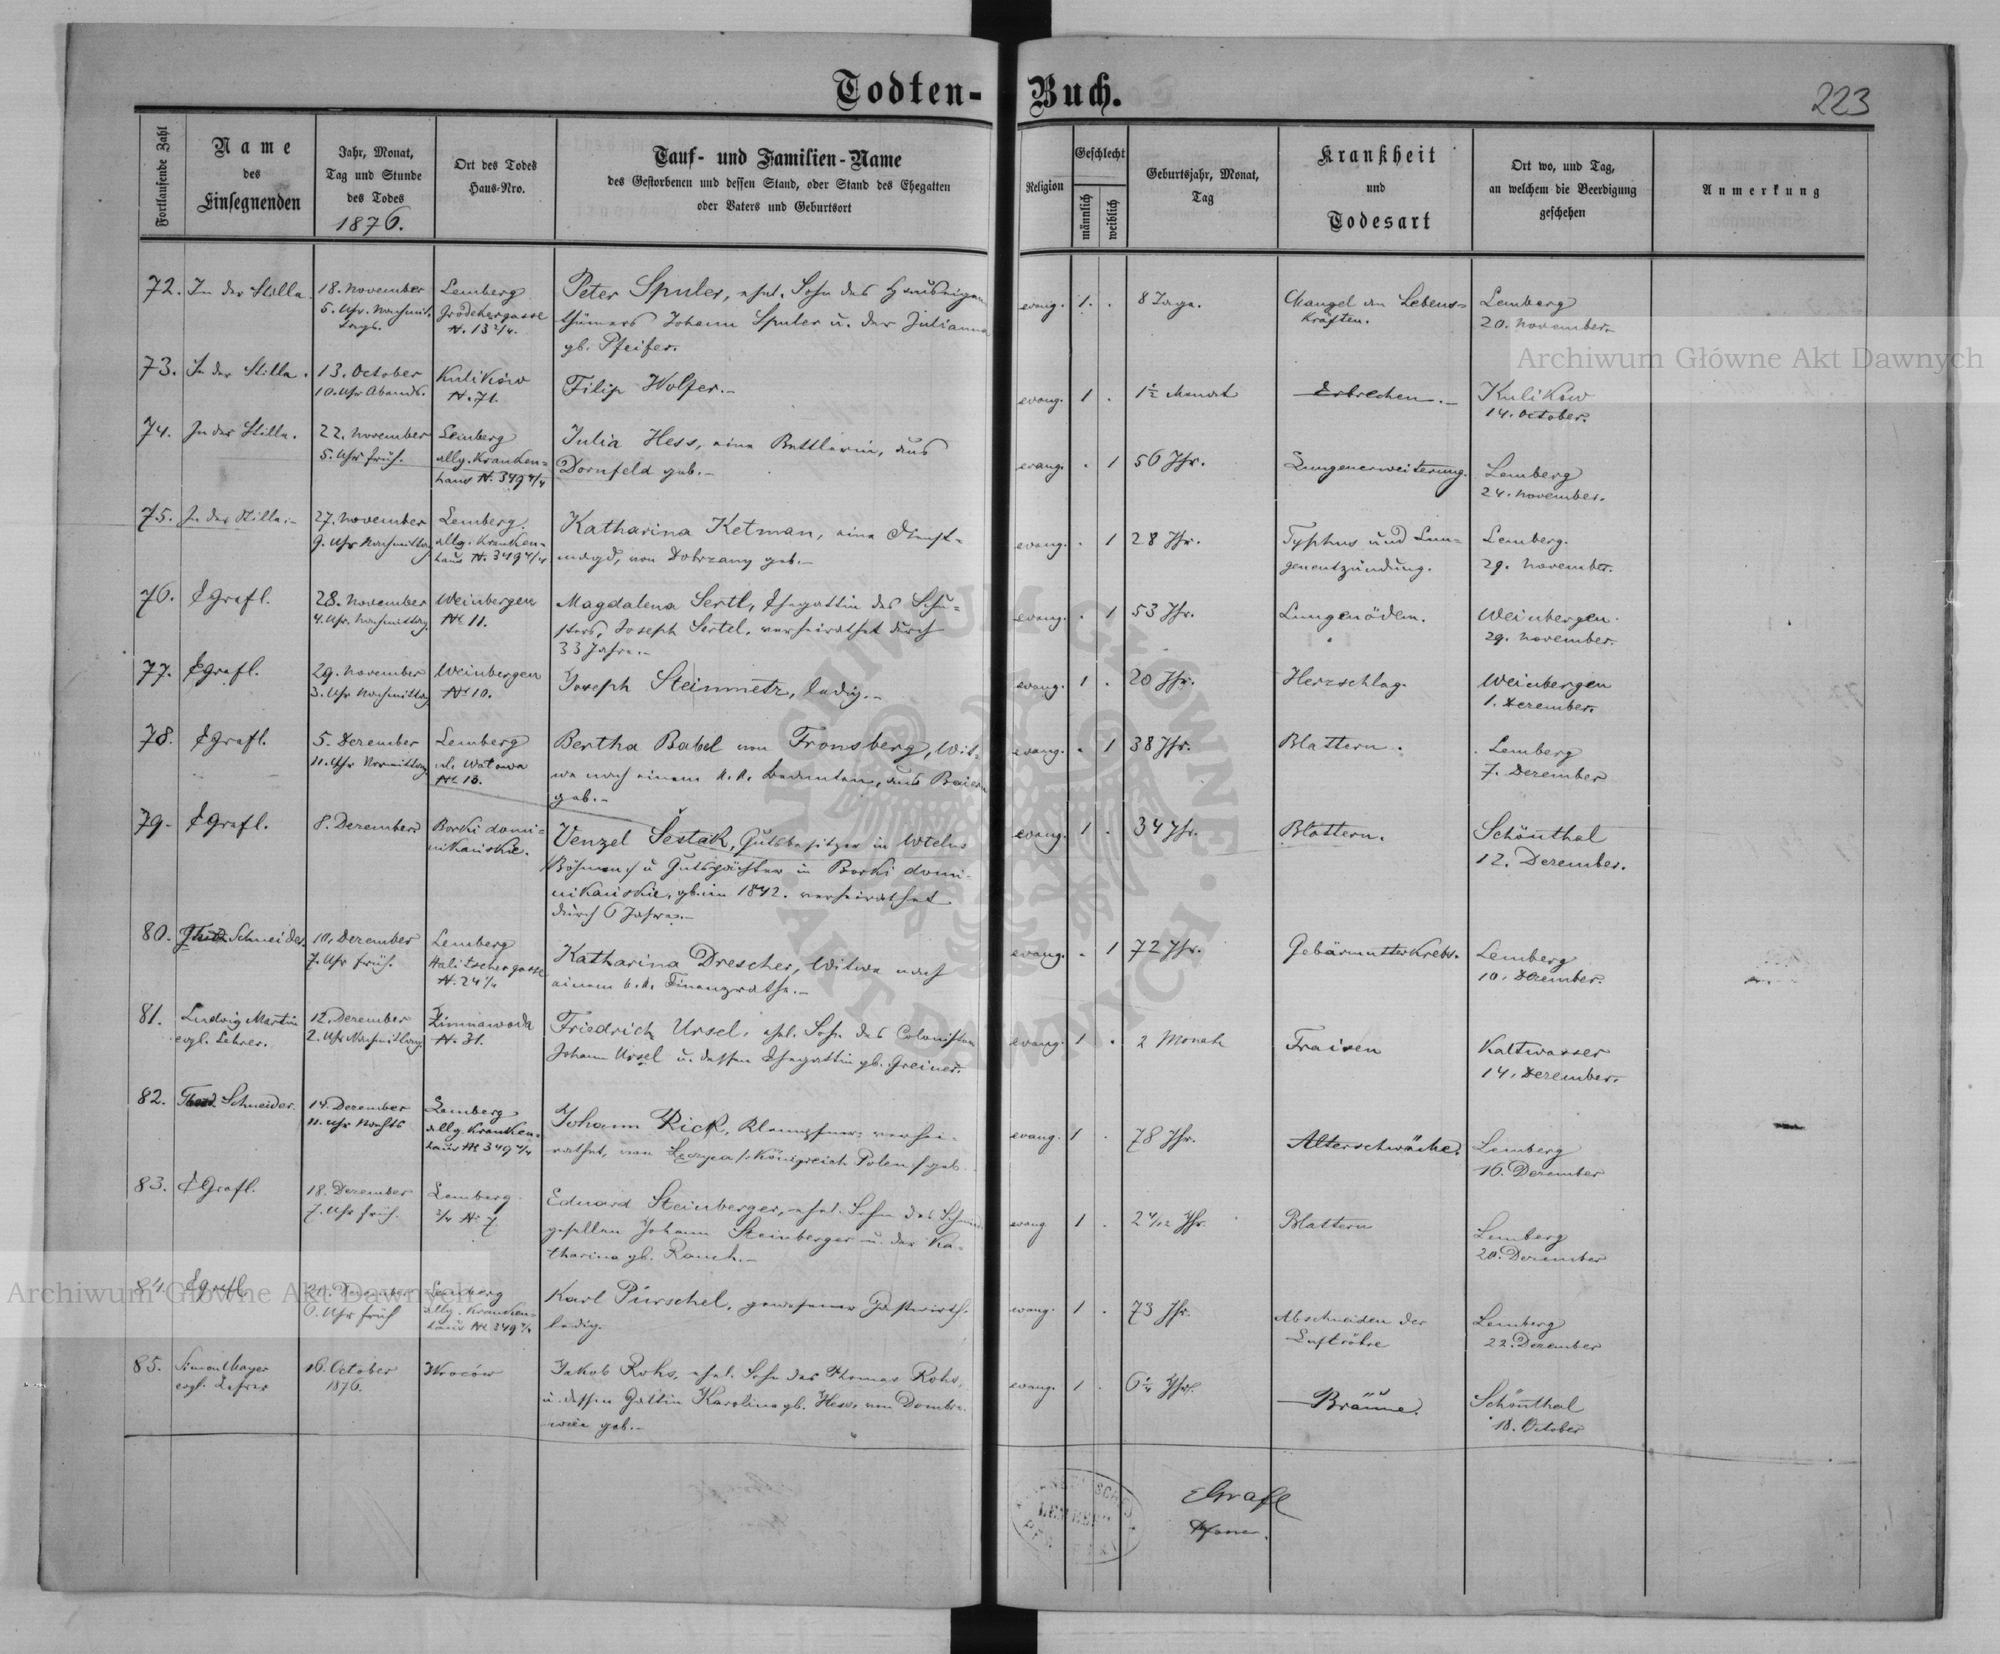 Todten-Buch.
223
Fortlaufende Zahl
Name
des
Einsegnenden
Jahr, Monat,
Tag und Stunde
des Todes
1876.
Ort des Todes
Haus-Nro.
Tauf- und Familien-Name
des Gestorbenen und dessen Stand, oder Stand des Ehegatten
oder Vaters und Geburtsort
Religion
Geschlecht
männlich
weiblich
Geburtsjahr, Monat,
Tag
Krankheit
und
Todesart
Ort wo, und Tag,
an welchem die Beerdigung
geschehen
Anmerkung
72. In der Stille. 18. November Lemberg Peter Spuler, ehel. Sohn des Hauseigen-
5. Uhr Nachmit- Grödekergasse thümers Johann Spuler u. der Julianna
tags. N. 13 2/4. gb. Pfeifer.
evang. 1. . 8 Tage. Mangel an Lebens- Lemberg
kräften. 20. November.
73. In der Stille. 13. October Kulików Filip Wolfer.
10. Uhr Abends. N. 71.
evang. 1 . 1½ Monat Erbrechen. Kulikow
14. October.
74. In der Stille. 22. November Lemberg Julia Hess, eine Bettlerin, aus
5. Uhr früh. allg. Kranken- Dornfeld geb.
haus N. 349 4/4
evang. . 1 56 Jhr. Lungenerweiterung. Lemberg
24. November.
75. In der Stille. 27. November Lemberg. Katharina Ketman, eine Dienst-
9. Uhr Nachmittag allg. Kranken- magd, von Dobrzany geb.
haus N. 349 4/4
evang. . 1 28 Jhr. Typhus und Lun- Lemberg.
genentzündung. 29. November.
76. EGrafl. 28. November Weinbergen Magdalena Sertl, Ehegattin des Schu-
4. Uhr. Nachmittag. N. 11. sters, Joseph Sertel, verheirathet durch
33 Jahre.
evang. . 1 53 Jhr. Lungenödem. Weinbergen.
29. November.
77. EGrafl. 29. November Weinbergen Joseph Steinmetz, ledig.
3. Uhr Nachmittag N. 10.
evang. 1 . 20 Jhr. Herzschlag. Weinbergen
1. Dezember.
78. EGrafl. 5. Dezember Lemberg Bertha Babel von Fronsberg, Wit-
11. Uhr Vormittag ul. Watowa we nach einem k.k. Beamten, aus Baiern
N. 13. geb.
evang. . 1 38 Jhr. Blattern. Lemberg
7. Dezember
79. EGrafl. 8. Dezember Borki domi- Venzel Šestak, Gutsbesitzer in
nikańskie. Böhmen u Gutspächter in Borki domi-
nikańskie, gb. in 1842. verheirathet
durch 6 Jahre.
evang. 1 . 34 Jhr. Blattern. Schönthal
12. Dezember.
80. Schneider. 10. Dezember Lemberg Katharina Drescher, Witwe nach
7. Uhr früh. Halitschergasse einem k.k. Finanzrathe.
N. 24 1/4
evang. . 1 72 Jhr. Gebärmutterkrebs. Lemberg
10. Dezember.
81. Ludwig Martin 12. Dezember Zimnawoda Friedrich Ursel, ehel. Sohn des Colonisten
evgl. Lehrer. 2. Uhr Nachmittag. N. 31. Johann Ursel u. dessen Ehegattin gb. Greiner.
evang. 1 . 2 Monate Fraisen Kaltwasser
14. Dezember.
82. Schneider. 14. Dezember Lemberg Johann Rick, Klempfner, verhei-
11. Uhr Nachts allg. Kranken- rathet, von Königreich Polen geb.
haus N. 349 4/4
evang. 1 . 78 Jhr. Altersschwäche. Lemberg
16. Dezember
83. EGrafl. 18. Dezember Lemberg. Eduard Steinberger, ehel. Sohn des
7. Uhr früh. N. 7 gesellen Johann Steinberger u. der Ka-
tharina gb. Rauch.
evang 1 . 2 4/12 Jhr. Blattern Lemberg
20. Dezember
84. EGrafl. 20. Dezember Lemberg Karl Pürschel, gewesener Gastwirth,
6. Uhr früh allg. Kranken- ledig.
haus N. 349 4/4
evang. 1 . 73 Jhr. Abschneiden der Lemberg
Luftröhre 22. Dezember
85. Simon Mayer 16. October Wroców Jakob Rohs, ehel. Sohn des Thomas Rohs,
evgl. Lehrer 1876. u. dessen Gattin Karolina gb. Hess, von
geb.
evang. 1 . 6¼ Jhr. Bräune. Schönthal
18. October
EGrafl
Pfarrer.
LEMBERG
Archiwum Główne Akt Dawnych
Archiwum Główne Akt Dawnych
ARCHIWUM GŁÓWNE AKT DAWNYCH